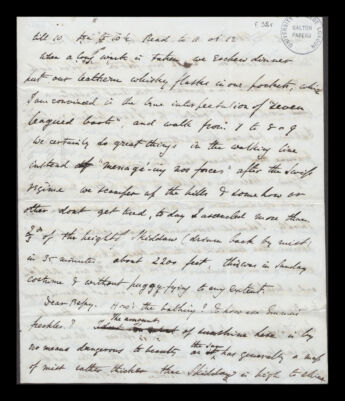 till 10. Read to 11 or 12
When a long walk is taken, we eschew dinner
put our leathern whisky flasks in our pockets, which
I am convinced is the true interpretation of "seven
leagued boots", and walk from 1 to 8 or 9
We certainly do great things in the walking line
instead of "menagé-ing nos forces" after the Swiss
régime we scamper up the hills & somehow or
other dont get tired, to day I ascended more than
of the height of Skiddaw (driven back by mist)
in 35 minutes about 2200 feet, this was in Sunday
costume & without puggyfying to any extent.
Dear Bessy. How's the bathing? & how are Emma's
freckles? the amount of sunshine here is by
no means dangerous to beauty as the sun has generally a mask
of mist rather thicker than Skiddaw is high to shine
UNIVERSITY COLLEGE LONDON
GALTON
PAPERS